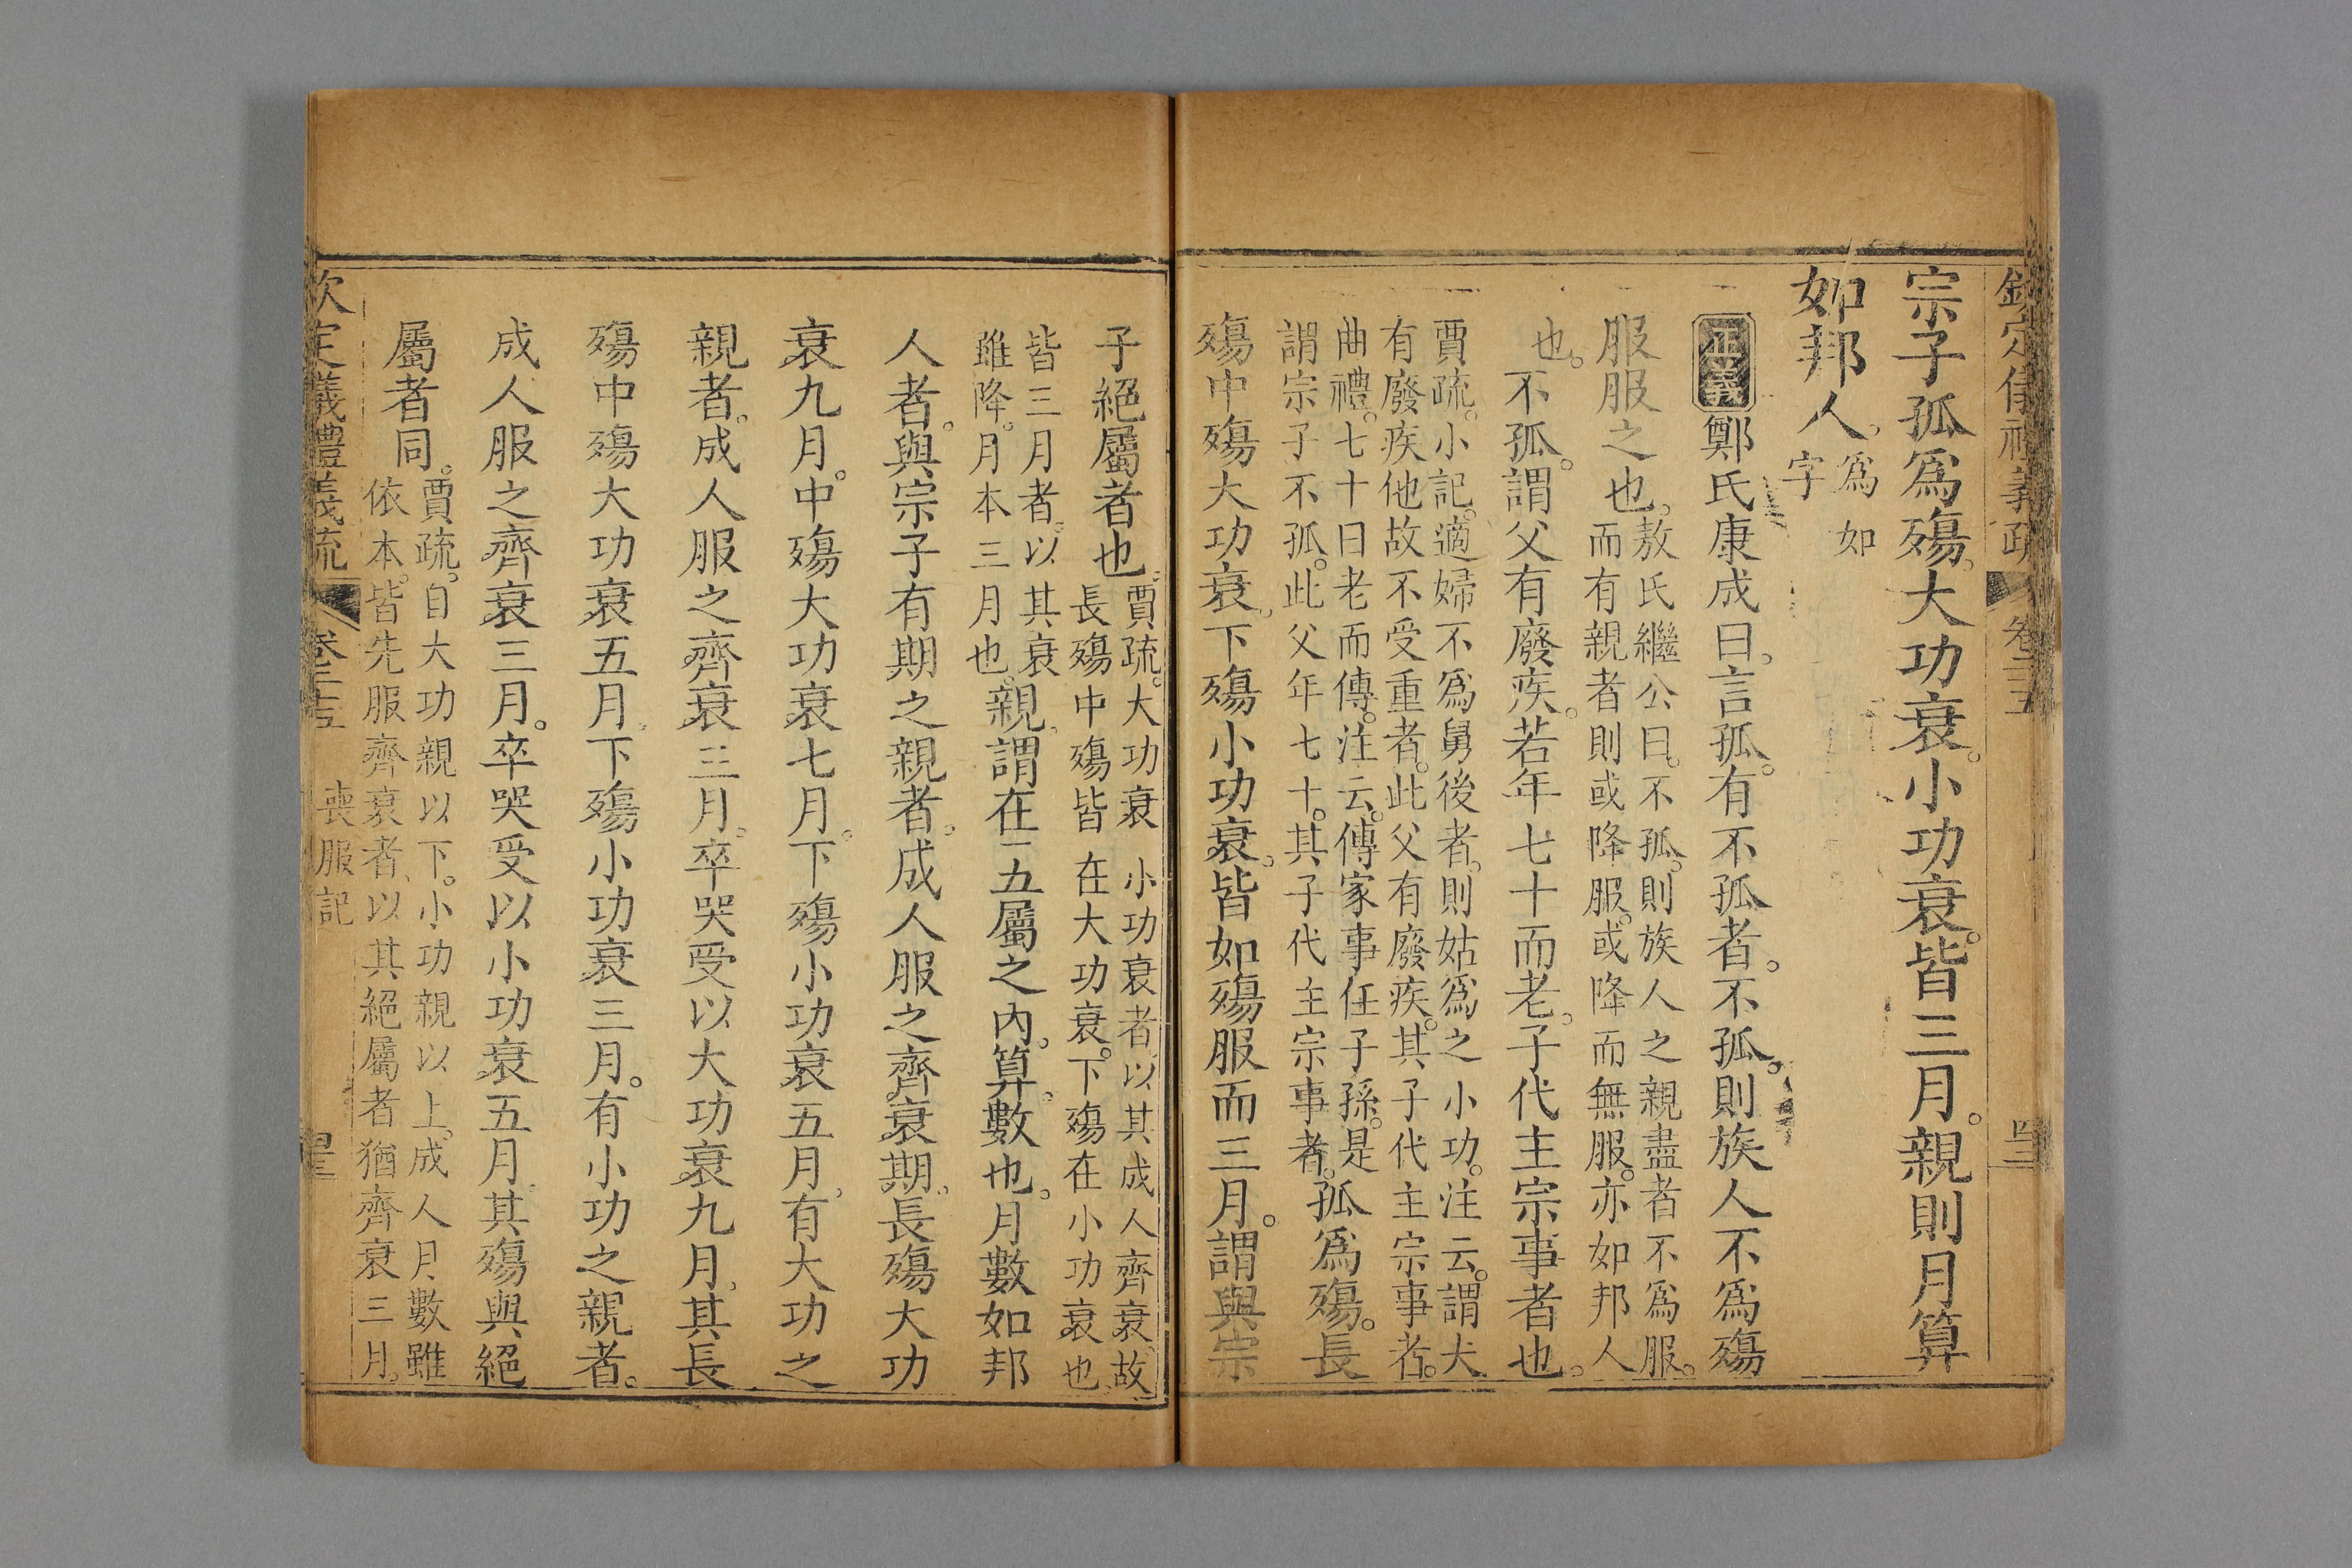 欽定儀禮義疏 卷二十五 四三
宗子孤爲殤。大功衰。小功衰。皆三月。親則月算
如邦人。爲如字
正義鄭氏康成曰。言孤。有不孤者。不孤。則族人不爲殤
服服之也。敖氏繼公曰。不孤。則族人之親盡者不爲服。
而有親者則或降服。或降而無服。亦如邦人
也。不孤。謂父有廢疾。若年七十而老。子代主宗事者也。
賈疏。小記。適婦不爲舅後者。則姑爲之小功。注云。謂夫
有廢疾他故不受重者。此父有廢疾。其子代主宗事者。
曲禮。七十曰老而傳。注云。傳家事任子孫。是
謂宗子不孤。此父年七十。其子代主宗事者。孤爲殤。長
殤中殤大功衰。下殤小功衰。皆如殤服而三月。謂與宗
子絕屬者也。賈疏。大功衰小功衰者。以其成人齊衰。故
長殤中殤皆在大功衰。下殤在小功衰也。
皆三月者。以其衰
雖降。月本三月也。親。謂在五屬之內。算。數也。月數如邦
人者。與宗子有期之親者。成人服之齊衰期。長殤大功
衰九月。中殤大功衰七月。下殤小功衰五月。有大功之
親者。成人服之齊衰三月。卒哭受以大功衰九月。其長
殤中殤大功衰五月。下殤小功衰三月。有小功之親者。
成人服之齊衰三月。卒哭受以小功衰五月。其殤與絕
屬者同。賈疏。自大功親以下。小功親以上。成人月數雖
依本。皆先服齊衰者。以其絕屬者猶齊衰三月。
欽定儀禮義疏 卷二十五 喪服記 四三